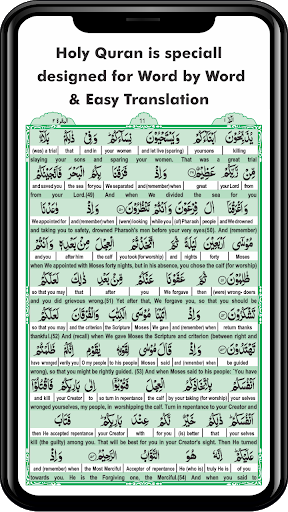 Holy Quran is speciall
designed for Word by Word
& Easy Translation
يُذَبِّحُوْنَ اَبْنَآءَكُمْ وَيَسْتَحْيُوْنَ نِسَآءَكُمْ وَفِيْ ذٰلِكُمْ بَلَآءٌ
(was) a trial that and in your women and let live (sparing) yoursons killing
slaying your sons and sparing your women. That was a great trial
مِّنْ رَّبِّكُمْ عَظِيْمٌ وَاِذْ فَرَقْنَا بِكُمُ الْبَحْرَ فَاَنْجَيْنٰكُمْ
and saved you the sea for you We separated and (remember) when great your Lord from
from your Lord.(49) And when We divided the sea for you
وَاَغْرَقْنَآ اٰلَ فِرْعَوْنَ وَاَنْتُمْ تَنْظُرُوْنَ وَاِذْ وٰعَدْنَا
We appointed for and (remember) when (were)looking while you (of) Pharaoh people and We drowned
and taking you to safety, drowned Pharaoh's men before your very eyes(50). And (remember)
مُوْسٰٓى اَرْبَعِيْنَ لَيْلَةً ثُمَّ اتَّخَذْتُمُ الْعِجْلَ مِنْ بَعْدِهٖ وَاَنْتُمْ
and you after him the calf you took (for worship) and nights forty Moses
when We appointed with Moses forty nights, but in his absence, you chose the calf (for worship)
ظٰلِمُوْنَ ثُمَّ عَفَوْنَا عَنْكُمْ مِّنْ بَعْدِ ذٰلِكَ لَعَلَّكُمْ
so that you may that after you We forgave then (were) wrong- doers
and you did grievous wrong.(51) Yet after that, We forgave you, so that you should be
تَشْكُرُوْنَ وَاِذْ اٰتَيْنَا مُوْسَى الْكِتٰبَ وَالْفُرْقَانَ لَعَلَّكُمْ
so that you may and the criterion the Scripture Moses We gave and (remember) when return thanks
thankful.(52) And (recall) when We gave Moses the Scripture and criterion (between right and
تَهْتَدُوْنَ وَاِذْ قَالَ مُوْسٰى لِقَوْمِهٖ يٰقَوْمِ اِنَّكُمْ ظَلَمْتُمْ
have wronged verily you O my people to his people Moses said and (remember) when be guided
wrong), so that you might be rightly guided.(53) And when Moses said to his people: 'You have
اَنْفُسَكُمْ بِاتِّخَاذِكُمُ الْعِجْلَ فَتُوْبُوْٓا اِلٰى بَارِئِكُمْ فَاقْتُلُوْٓا
and kill your Creator to so turn in repentance the calf by your taking (for worship) your selves
wronged yourselves, my people, in worshipping the calf. Turn in repentance to your Creator and
اَنْفُسَكُمْ ذٰلِكُمْ خَيْرٌ لَّكُمْ عِنْدَ بَارِئِكُمْ فَتَابَ
then He accepted repentance your Creator with for you (is) better that your selves
kill (the guilty) among you. That will be best for you in your Creator's sight. Then He turned
عَلَيْكُمْ اِنَّهٗ هُوَ التَّوَّابُ الرَّحِيْمُ وَاِذْ
and (remember) when the Most Merciful Acceptor of repentance He (who is) truly He is of you
towards you. He is the Forgiving one, the Merciful.(54) And when you said to